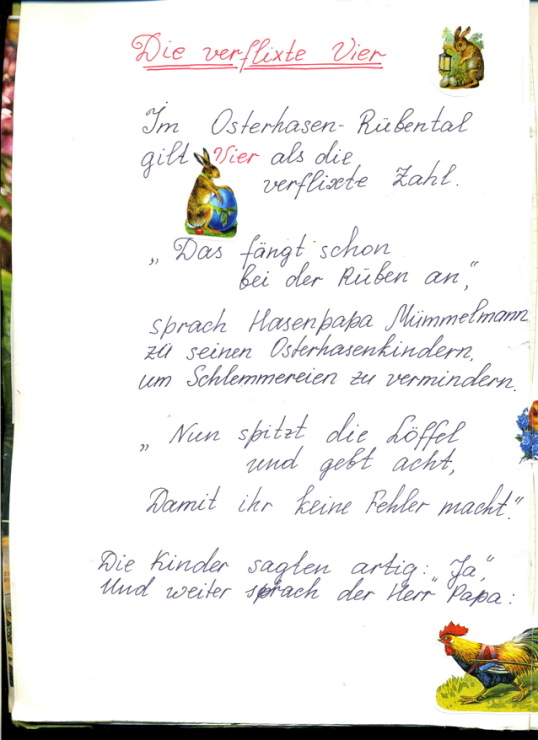 Die verflixte Vier
Im Osterhasen-Rübental
gilt Vier als die
verflixte Zahl.
„Das fängt schon
bei der Rüben an,"
sprach Hasenpapa Mümmelmann
zu seinen Osterhasenkindern,
um Schlemmereien zu vermindern.
„Nun spitzt die Löffel
und gebt acht,
Damit ihr keine Fehler macht."
Die Kinder sagten artig: „Ja",
Und weiter sprach der Herr Papa: